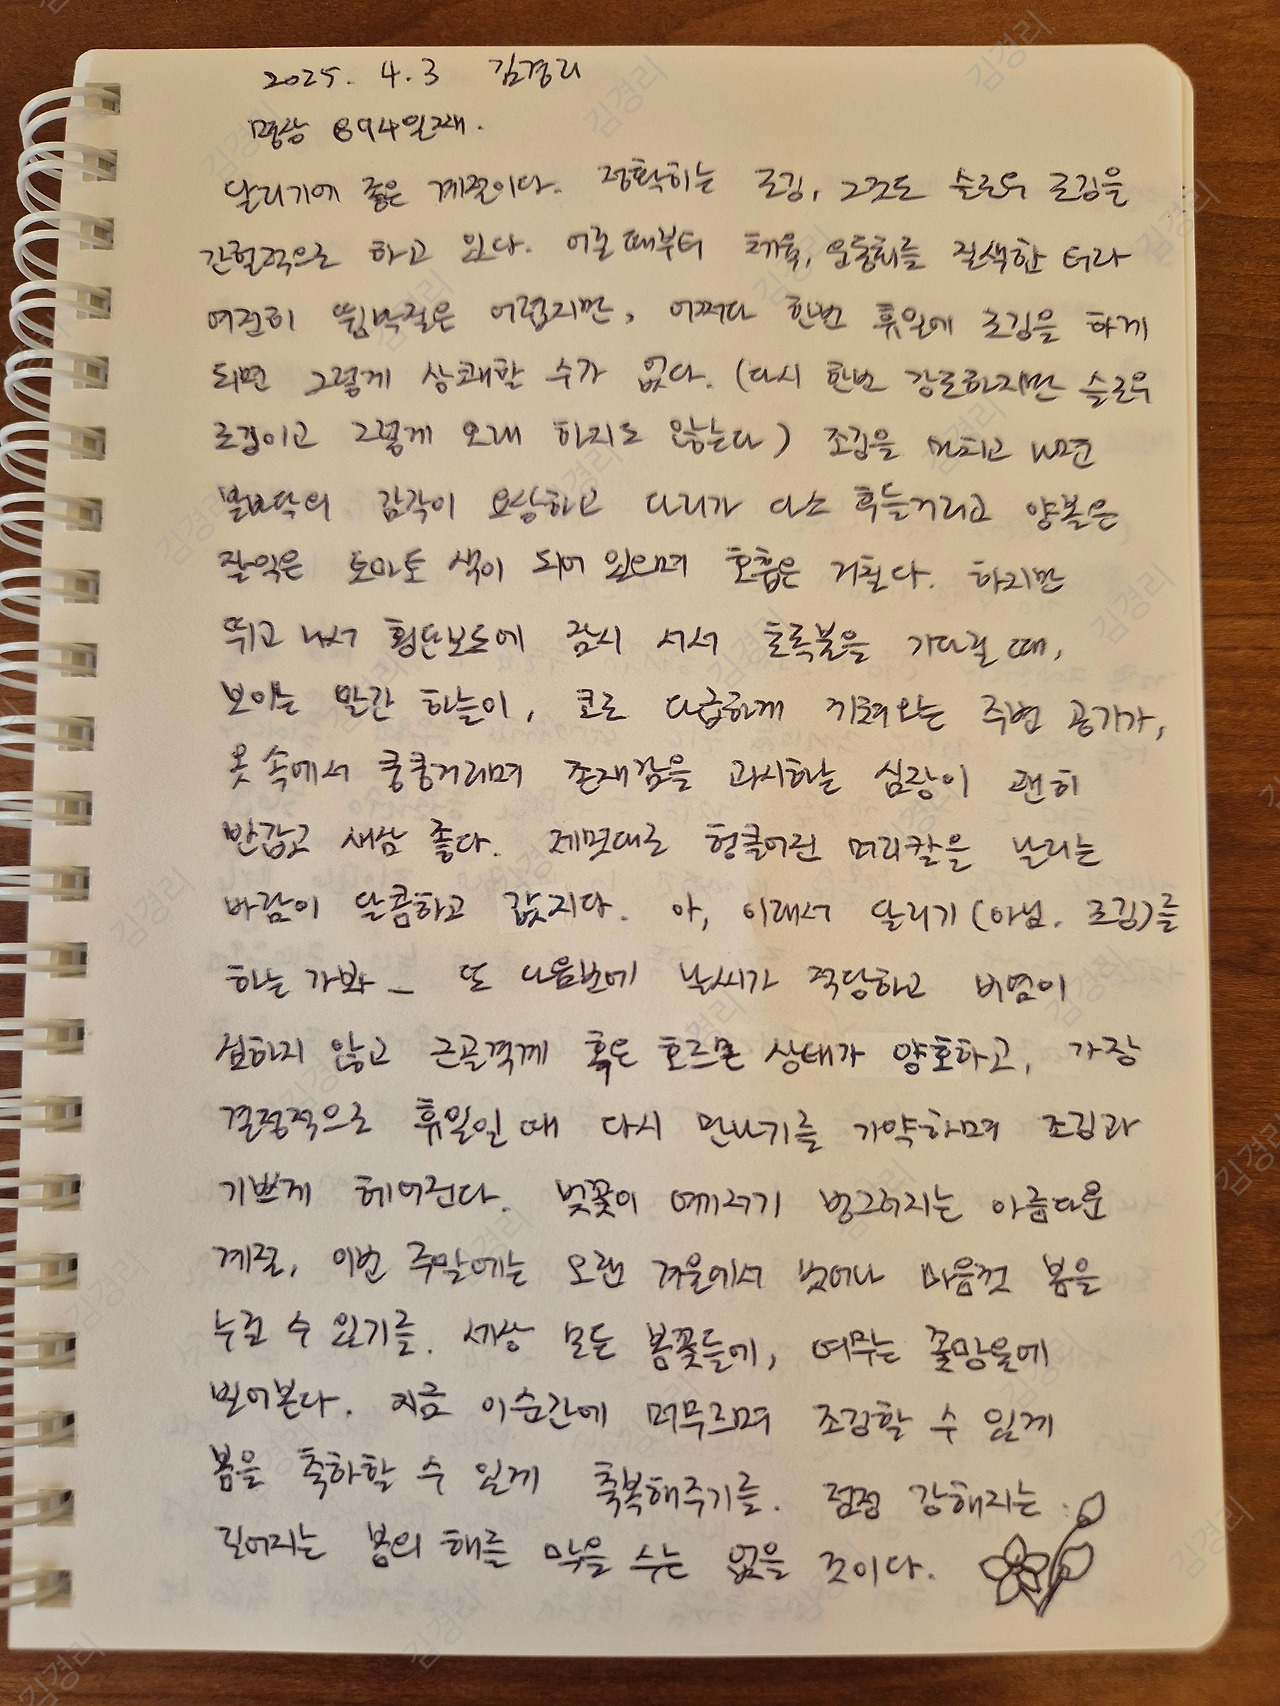 2025. 4. 3 김경리
명상 894일째.
달리기에 좋은 계절이다. 정확히는 조깅, 그것도 슬로우 조깅을
간헐적으로 하고 있다. 어릴 때부터 체육, 운동회를 질색한 터라
여전히 뜀박질은 어렵지만, 어쩌다 한번 휴일에 조깅을 하게
되면 그렇게 상쾌할 수가 없다. (다시 한번 강조하지만 슬로우
조깅이고 그렇게 오래 하지도 않는다) 조깅을 마치고 나면
발바닥의 감각이 요상하고 다리가 다소 후들거리고 양볼은
잘익은 토마토 색이 되어 있으며 호흡은 거칠다. 하지만
뛰고 나서 횡단보도에 잠시 서서 초록불을 기다릴 때,
보이는 말간 하늘이, 코로 다급하게 끼쳐오는 주변 공기가,
옷 속에서 쿵쿵거리며 존재감을 과시하는 심장이 괜히
반갑고 새삼 좋다. 제멋대로 헝클어진 머리칼을 날리는
바람이 달콤하고 값지다. 아, 이래서 달리기(아님. 조깅)를
하는가봐_ 또 다음번에 날씨가 적당하고 비염이
심하지 않고 근골격계 혹은 호르몬 상태가 양호하고, 가장
결정적으로 휴일일 때 다시 만나기를 기약하며 조깅과
기쁘게 헤어진다. 벚꽃이 여기저기 벙그러지는 아름다운
계절, 이번 주말에는 오랜 겨울에서 벗어나 마음껏 봄을
누릴 수 있기를. 세상 모든 봄꽃들에, 여무는 꽃망울에
빌어본다. 지금 이순간에 머무르며 조깅할 수 있게
봄을 축하할 수 있게 축복해주기를. 점점 강해지는
길어지는 봄의 해를 막을 수는 없을 것이다.
김경리